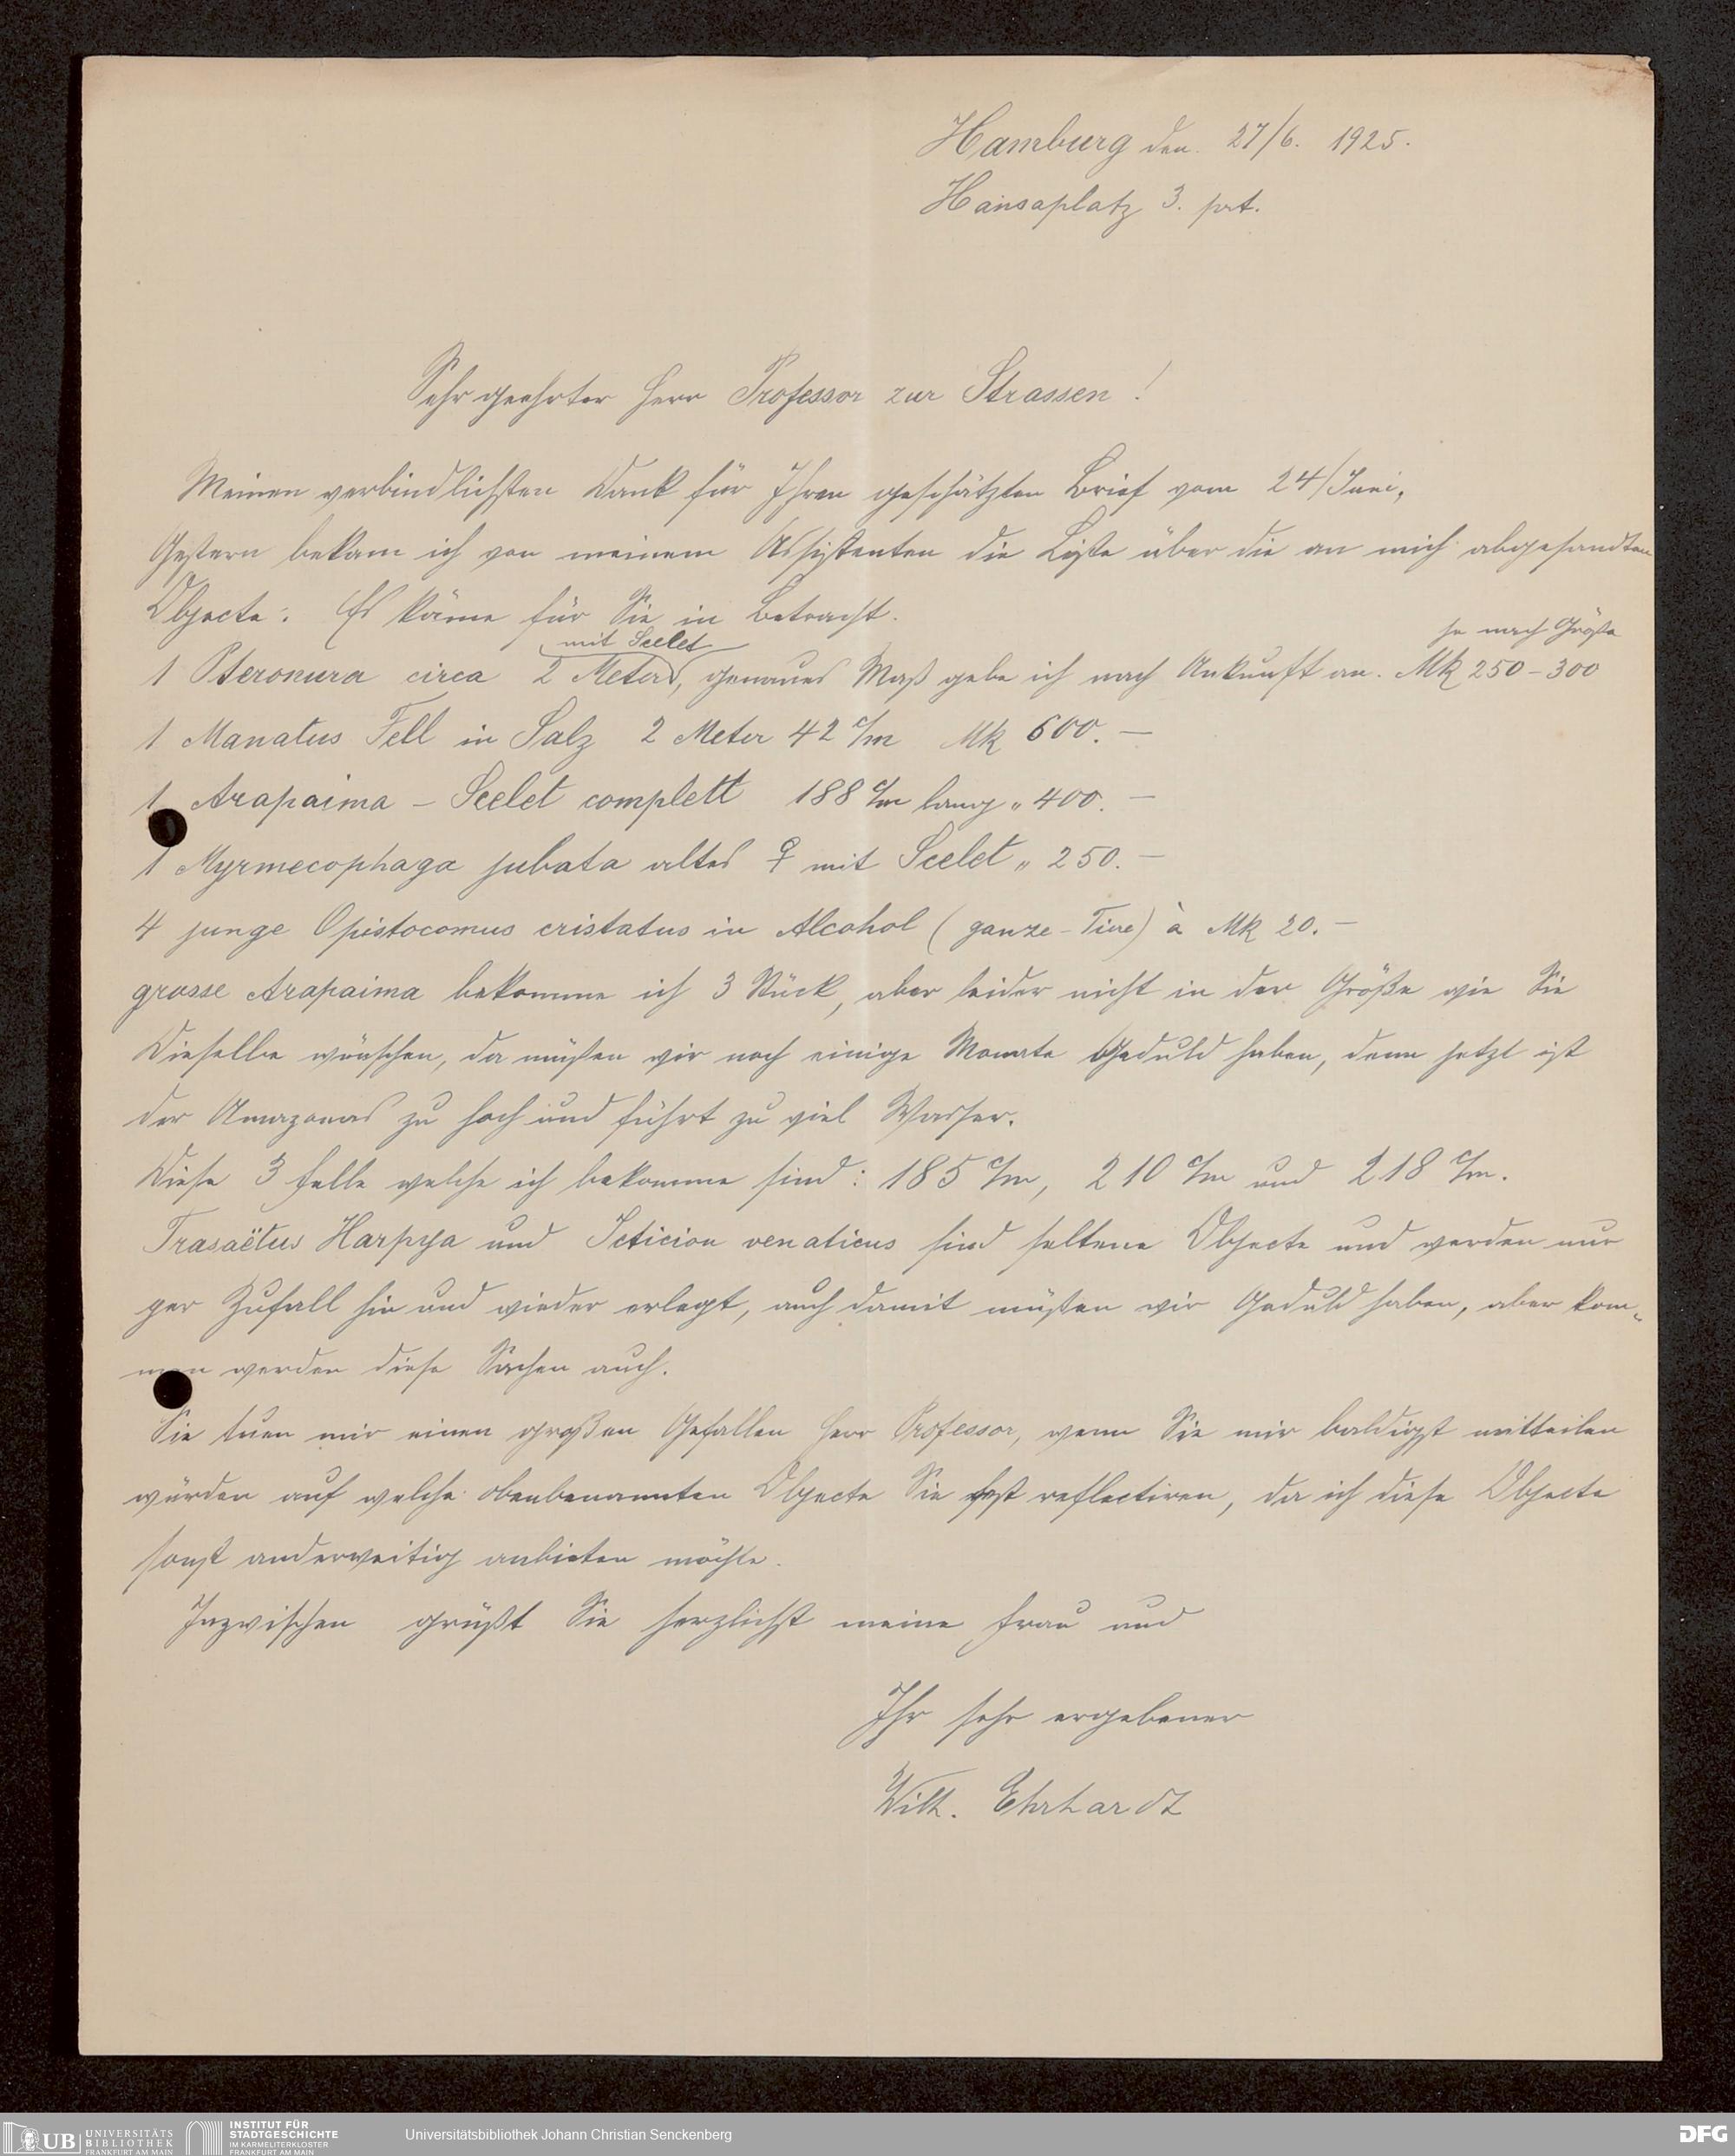 Hamburg den. 27/6. 1925.
Hansaplatz 3. prt.
Sehr geehrter Herr Professor zur Strassen!
Meinen verbindlichsten Dank für Ihren geschätzten Brief vom 24/Juni,
Gestern bekam ich von meinem Assistenten die Liste über die an mich abgesandten
Objecte. Es käme für Sie in Betracht.
mit Scelet
je nach Größe
1 Pteronura circa 2 Meter, genaues Maß gebe ich nach Ankunft an. Mk 250-300
1 Manatus Fell in Salz 2 Meter 42 c/m Mk 600.—
1 Arapaima - Scelet complett 188 c/m lang „ 400.—
1 Myrmecophaga jubata altes ♀ mit Scelet „ 250.—
4 junge Opistocomus cristatus in Alcohol (ganze-Tiere) à Mk 20.—
grosse Arapaima bekomme ich 3 Stück, aber leider nicht in der Größe wie Sie
Dieselbe wünschen, da müßen wir noch einige Monate Geduld haben, denn jetzt ist
der Amazonas zu hoch und führt zu viel Wasser.
Diese 3 Felle welche ich bekomme sind: 185 c/m, 210 c/m und 218 c/m.
Trasaëtus Harpya und Icticion venaticus sind seltene Objecte und werden nur
per Zufall hin und wieder erlegt, auch damit müßen wir Geduld haben, aber kom-
men werden diese Sachen auch.
Sie tuen mir einen großen Gefallen Herr Professor, wenn Sie mir baldigst mitteilen
würden auf welche obenbenannten Objecte Sie fest reflectiren, da ich diese Objecte
sonst anderweitig anbieten möchte.
Inzwischen grüßt Sie herzlichst meine Frau und
Ihr sehr ergebener
Wilh. Ehrhardt
UB UNIVERSITÄTS
BIBLIOTHEK
FRANKFURT AM MAIN
INSTITUT FÜR
STADTGESCHICHTE
IM KARMELITERKLOSTER
FRANKFURT AM MAIN
Universitätsbibliothek Johann Christian Senckenberg
DFG